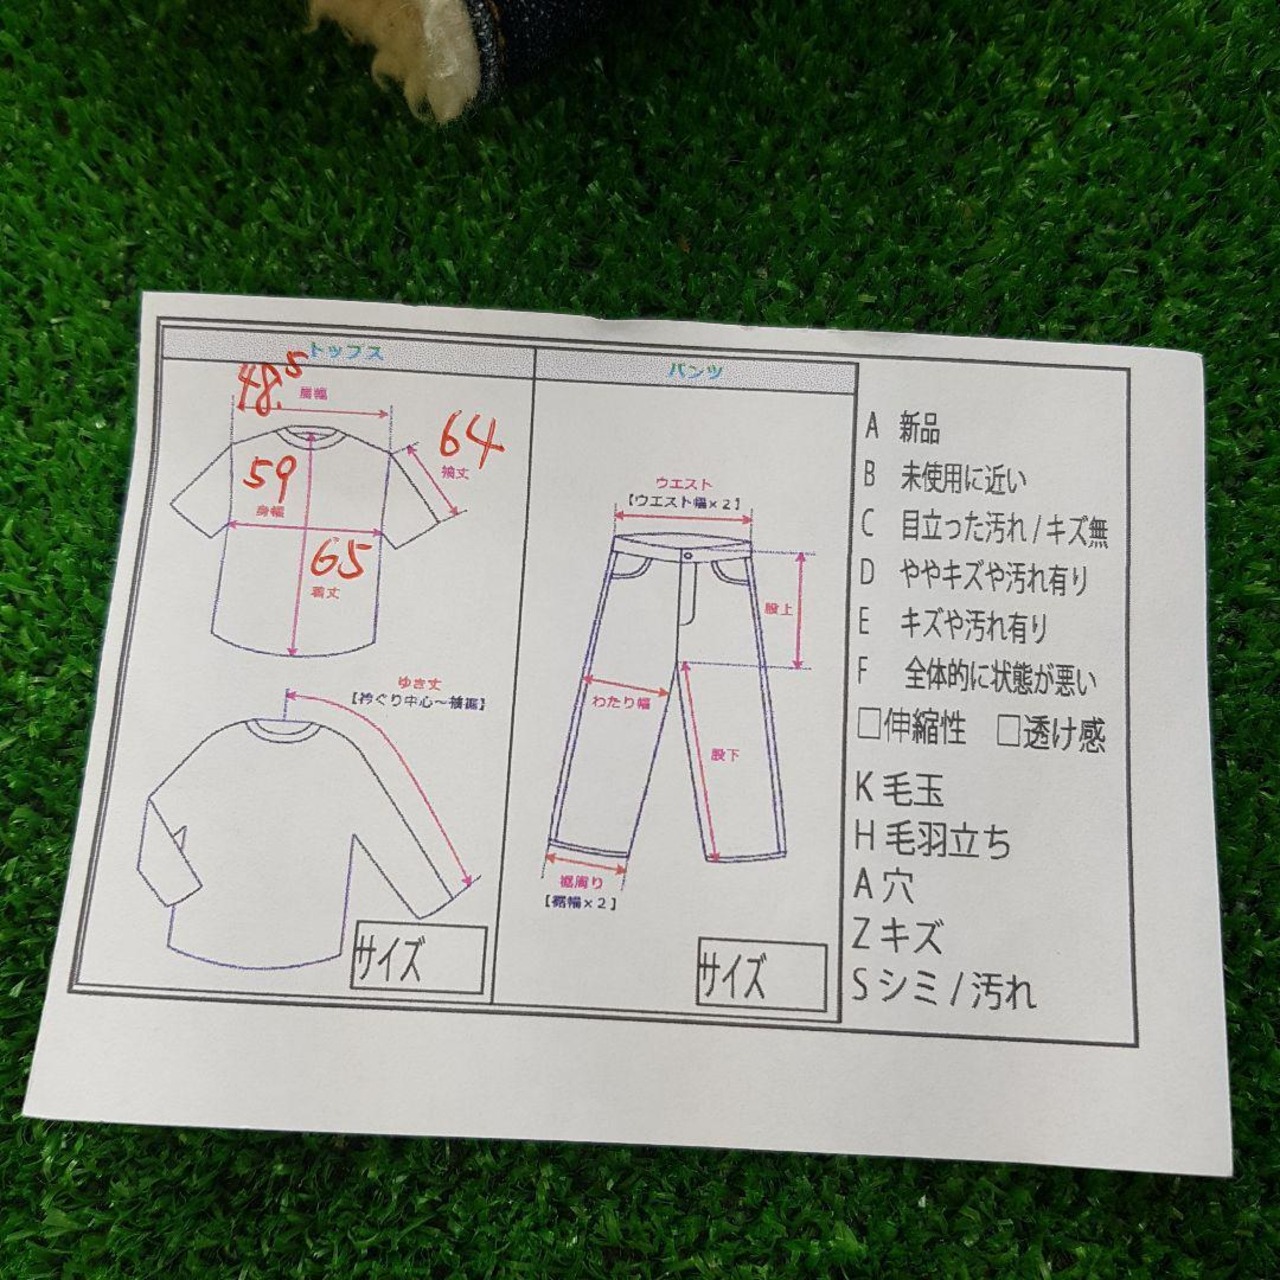 トップス
48.5
肩幅
64
袖丈
59
身幅
65
着丈
ゆき丈
【衿ぐり中心～袖裾】
サイズ
パンツ
ウエスト
【ウエスト幅×2】
股上
わたり幅
股下
裾周り
【裾幅×2】
サイズ
A 新品
B 未使用に近い
C 目立った汚れ/キズ無
D ややキズや汚れ有り
E キズや汚れ有り
F 全体的に状態が悪い
□伸縮性 □透け感
K 毛玉
H 毛羽立ち
A 穴
Z キズ
S シミ/汚れ